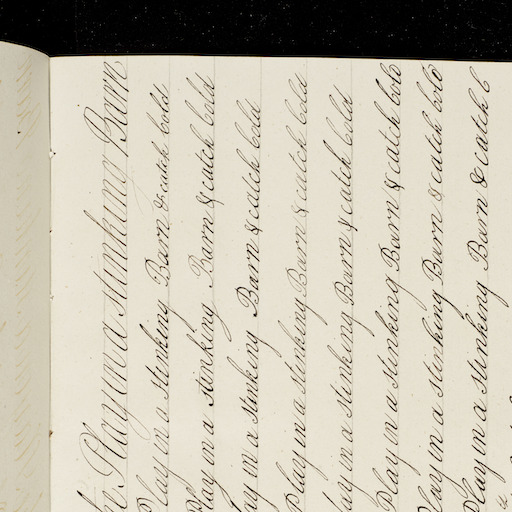 Play in a stinking Barn
Play in a stinking Barn & catch Cold
Play in a stinking Barn & catch Cold
Play in a stinking Barn & catch Cold
Play in a stinking Barn & catch Cold
Play in a stinking Barn & catch Cold
Play in a stinking Barn & catch Cold
Play in a stinking Barn & catch Cold
Play in a stinking Barn & catch C